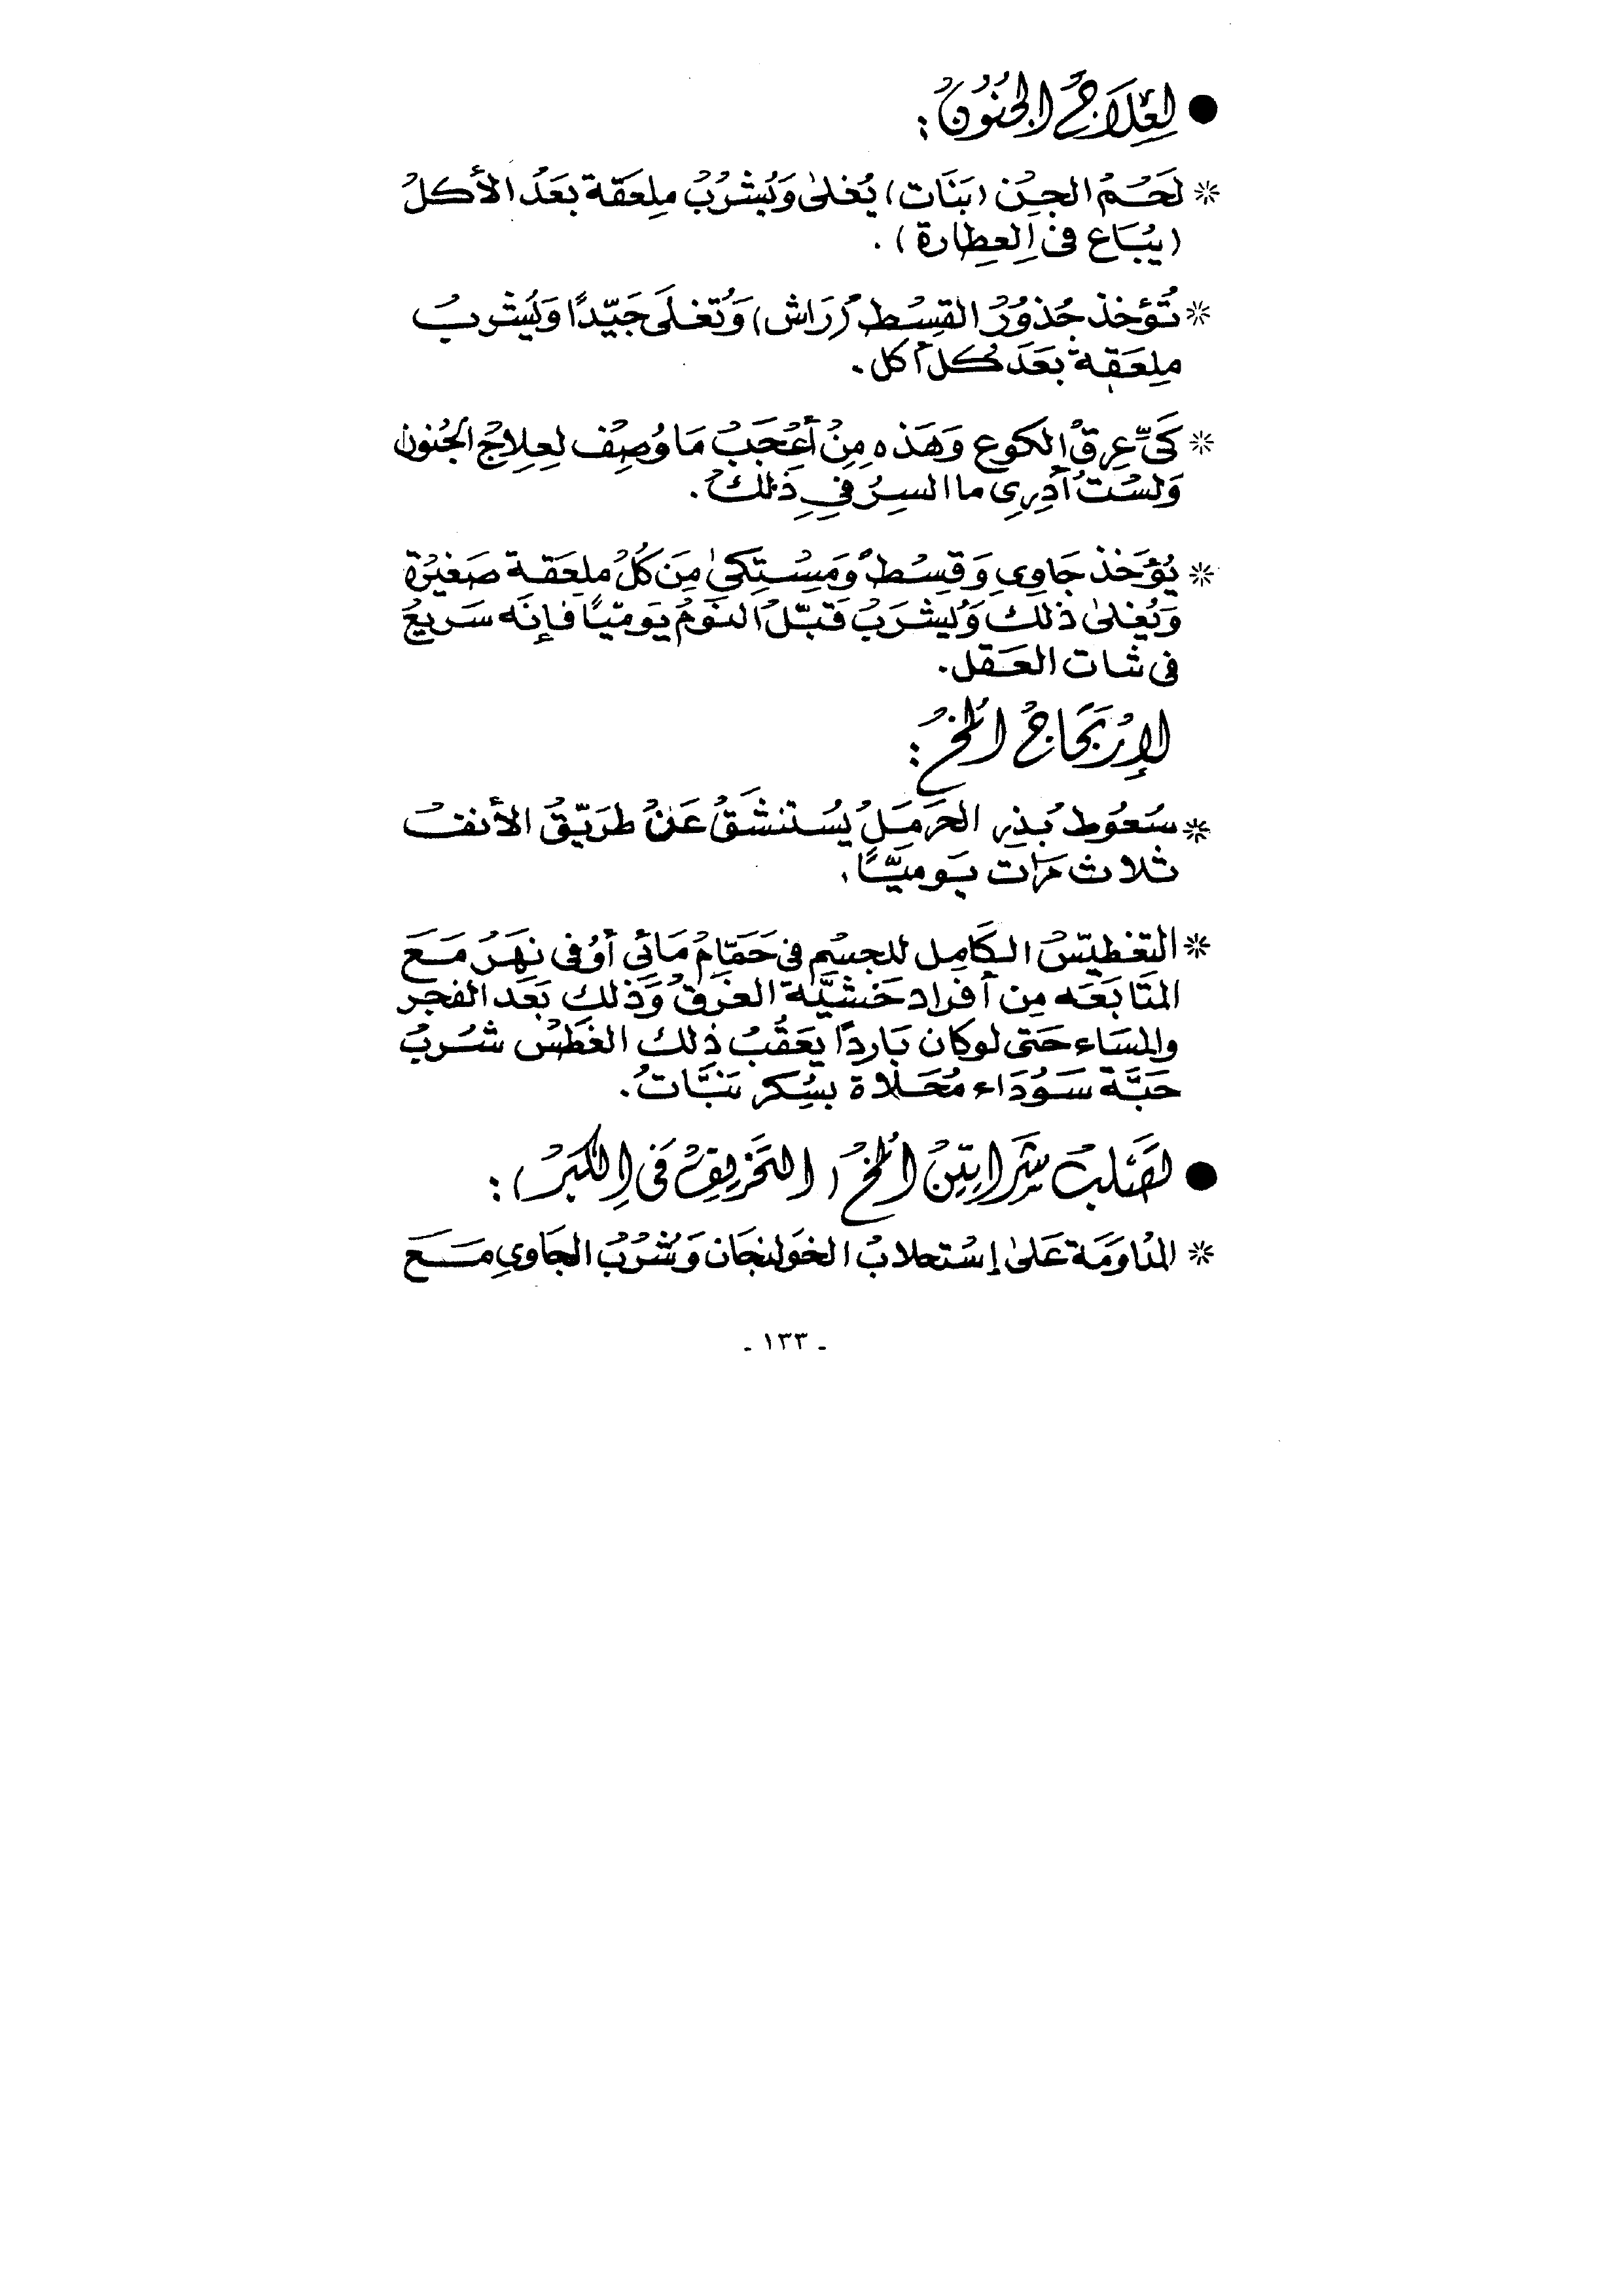 ● لِعِلَاجُ الجُنُونُ:
* لَحَمُ الجِن (بَنَات) يُغلىٰ وَيُشْرُبُ مِلعَقَة بعَدُ الأكلُ
(يُبَاع في العِطارة).
* تُؤخذ جُذوُرُ القِسُط (رَاش) وَتُغلَى جَيّدًا وَيُشرب
مِلعَقة بعَدَ كُل أكل.
* كَىِّ عِرقُ الكوع وَهَذه مِنُ أَعُجَبُ مَا وُصِف لعِلاجُ الجُنون
وَلسُتُ أدِري ما السِرُ فِي ذِلكُ.
* يُؤخَذ جَاوِي وَقِسُط وَمِسُتِكىٰ مِنَ كُلُ مِلعَقة صَغيُرة
وَيُغلىٰ ذلك وَيُشرَبُ قَبّلُ النَومُ يَوميًا فإنَه سَريعُ
في شات العَقل.
لإرُتجَاجُ المُخُ:
* سَعُوط بُذِر الحَرمَلُ يُسَتنشَقُ عَنُ طَريّقُ الأنفُ
ثلاث مَرَات يَوميًّا.
* التغَطيّسُ الكَامِل للجسُم في حَمّامُ مَائي أوُ في نهَرُ مَعَ
المتَابَعَه مِن أفراد خَشيَّة الغرَقُ وَذلك بَعَد الفجر
والمسَاء حَتى لوكان بَاردًا يعَقُبُ ذِلك الغَطسُ شُربُ
حَبَّة سَوُدَاء مُحَلاة بسُكر نبَّاتُ.
● لصَلبُ شَرايِيّنُ المُخُ (التخَريِفُ في الكبَرُ):
* المُداوَمَة عَلىٰ إستحلابُ الخَولنجَان وَشُرُبُ الجَاوي مَعَ
- ١٣٣ -